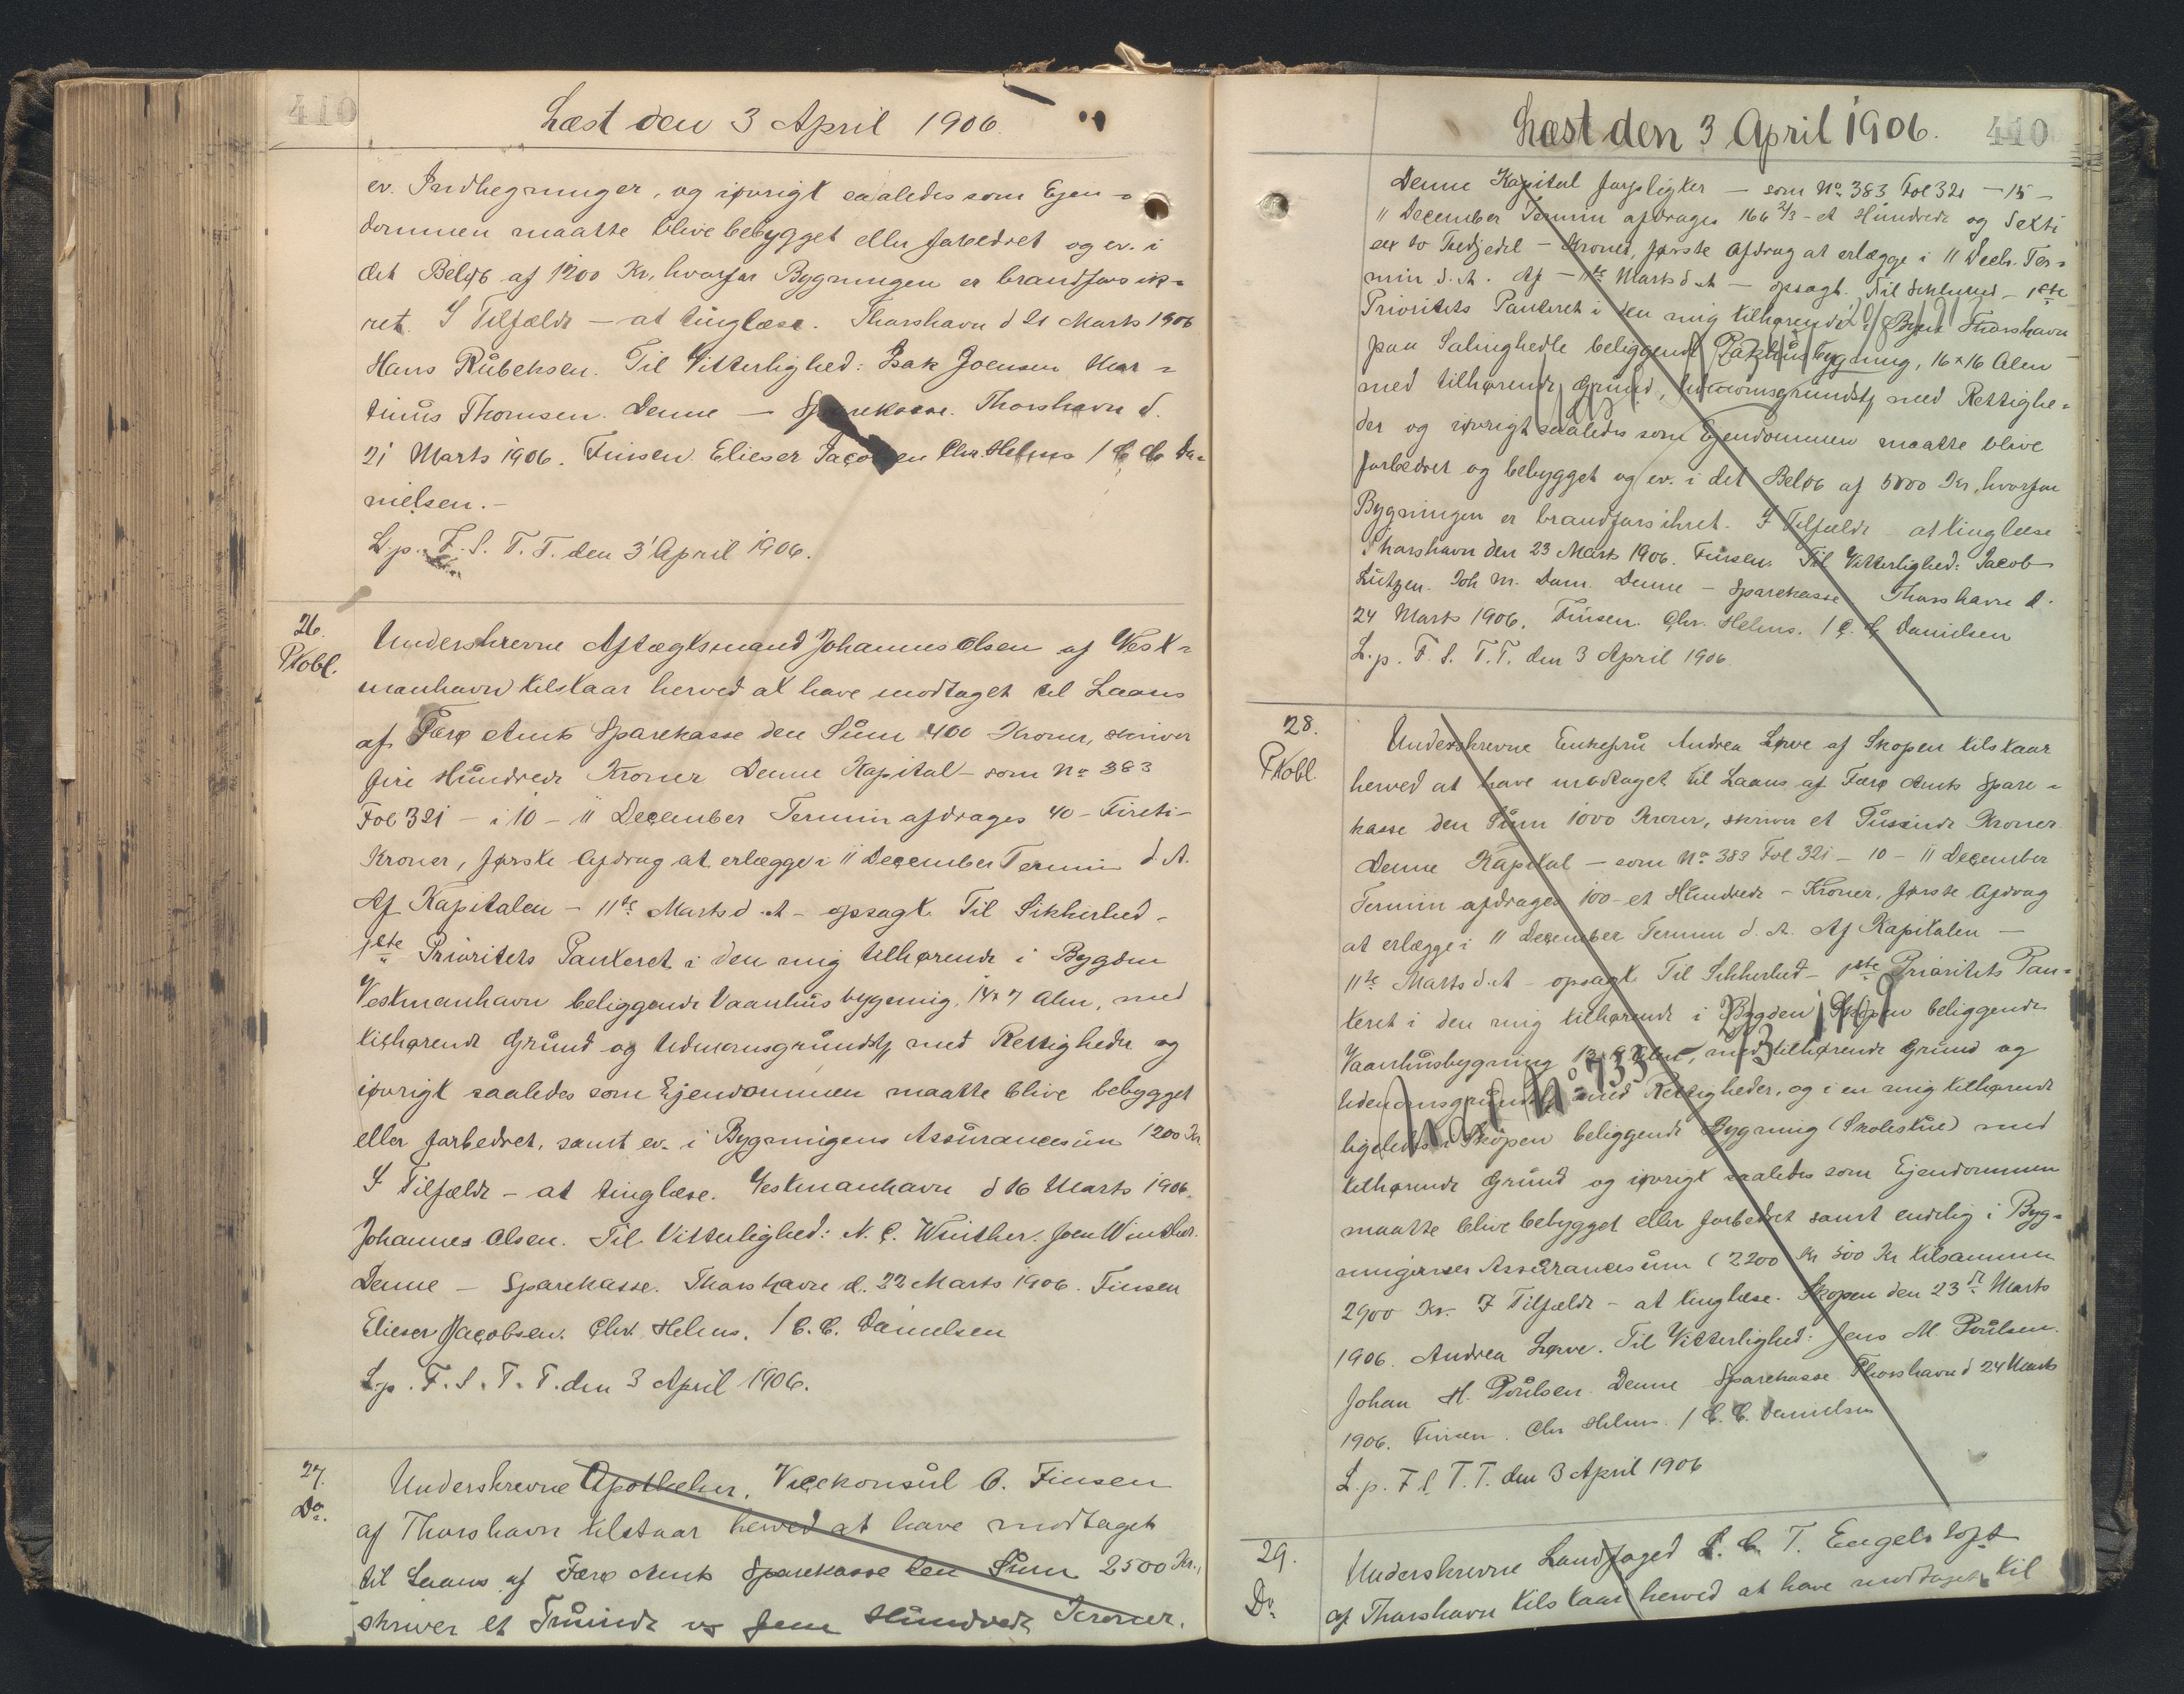 410
Læst den 3 April 1906.
ev. Indhegninger, og iøvrigt saaledes som Ejen=
dommen maatte blive bebygget eller forbedret og ev. i
det Beløb af 1200 Kr, hvorfor Bygningen er brandforsik=
ret. I Tilfælde — at tinglæse. Thorshavn d 21 Marts 1906
Hans Rubeksen. Til Vitterlighed: Isak Joensen Mar=
tinus Thomsen. Denne — Sparekasse. Thorshavn d.
21 Marts 1906. Finsen. Elieser Jacobsen Chr. Helms / C. C. Da=
nielsen.-
L. p. F. S. T. T. den 3 April 1906.
26.
PKobl.
Underskrevne Aftægtsmand Johannes Olsen af Vest=
manhavn tilstaar herved at have modtaget til Laans
af Færø Amts Sparekasse den Sum 400 Kroner, skriver
fire Hundrede Kroner Denne Kapital — som No 383
Fol 321 — i 10 — 11 December Termin afdrages 40 — Fireti —
Kroner, første Afdrag at erlægge i 11 December Termin d. A.
Af Kapitalen — 11te Marts d. A — opsagt. Til Sikkerhed —
1ste Prioritets Panteret i den mig tilhørende i Bygden
Vestmanhavn beliggende Vaanhusbygning, 14 x 7 Alen, med
tilhørende Grund og Udmarksgrundst med Rettigheder og
iøvrigt saaledes som Ejendommen maatte blive bebygget
eller forbedret, samt ev. i Bygningens Assurancesum 1200 Kr
I Tilfælde — at tinglæse. Vestmanhavn d 16 Marts 1906.
Johannes Olsen. Til Vitterlighed: N. C. Winther. Joen Winther.
Denne — Sparekasse. Thorshavn d. 22 Marts 1906. Finsen
Elieser Jacobsen. Chr. Helms. / C. C. Danielsen
L. p. F. S. T. T. den 3 April 1906.
27.
Do.
Underskrevne Apotheker, Vicekonsul O. Finsen
af Thorshavn tilstaar herved at have modtaget
til Laans af Færø Amts Sparekasse den Sum 2500 Kr.,
skriver et Tusinde og fem Hundrede Kroner.
Læst den 3 April 1906. 410
Denne Kapital forpligter — som No 383 Fol 321 — 15 —
11 December Termin afdrages 166 2/3 — et Hundrede og Sexti
sex to Tredjedel — Kroner, første Afdrag at erlægge i 11 Decbr. Ter=
min d. A. Af — 11te Marts d. A — opsagt. Til Sikkerhed — 1ste
Prioritets Panteret i den mig tilhørende i Byen Thorshavn
paa Salinghedle beliggende Pakhusbygning, 16 x 16 Alen
med tilhørende Grund, Udmarksgrundst med Rettighe=
der og iøvrigt saaledes som Ejendommen maatte blive
forbedret og bebygget og ev. i det Beløb af 5000 Kr, hvorfor
Bygningen er brandforsikret. I Tilfælde — at tinglæse
Thorshavn den 23 Marts 1906. Finsen. Til Vitterlighed: Jacob
Lützen. Joh M. Dam. Denne — Sparekasse Thorshavn d.
24 Marts 1906. Finsen. Chr. Helms. / C. C. Danielsen
L. p. F. S. T. T. den 3 April 1906.
28.
PKobl.
Underskrevne Enkefru Andrea Lørve af Skopen tilstaar
herved at have modtaget til Laans af Færø Amts Spare=
kasse den Sum 1000 Kroner, skriver et Tusinde Kroner
Denne Kapital — som No 383 Fol 321 — 10 — 11 December
Termin afdrages 100 — et Hundrede — Kroner, første Afdrag
at erlægge i 11 December Termin d. A. Af Kapitalen —
11te Marts d. A — opsagt Til Sikkerhed — 1ste Prioritets Pan=
teret i den mig tilhørende i Bygden Skopen beliggende
Vaanhusbygning 13 x 9 Alen, med tilhørende Grund og
Udmarksgrundst med Rettigheder, og i en mig tilhørende
No 733
ligeledes i Skopen beliggende Bygning (Skolestue) med
tilhørende Grund og iøvrigt saaledes som Ejendommen
maatte blive bebygget eller forbedret samt endelig i Byg=
ningernes Assurancesum (2200 Kr 500 Kr tilsammen
2900 Kr. I Tilfælde — at tinglæse. Skopen den 23de Marts
1906. Andrea Lørve. Til Vitterlighed: Jens M. Poulsen.
Johan H. Poulsen. Denne Sparekasse Thorshavn d 24 Marts
1906. Finsen. Chr Helms. / C. C. Danielsen
L. p. F S. T. T. den 3 April 1906
29.
Do
Underskrevne Landfoged S. C. T. Engelstoft
af Thorshavn tilstaar herved at have modtaget til